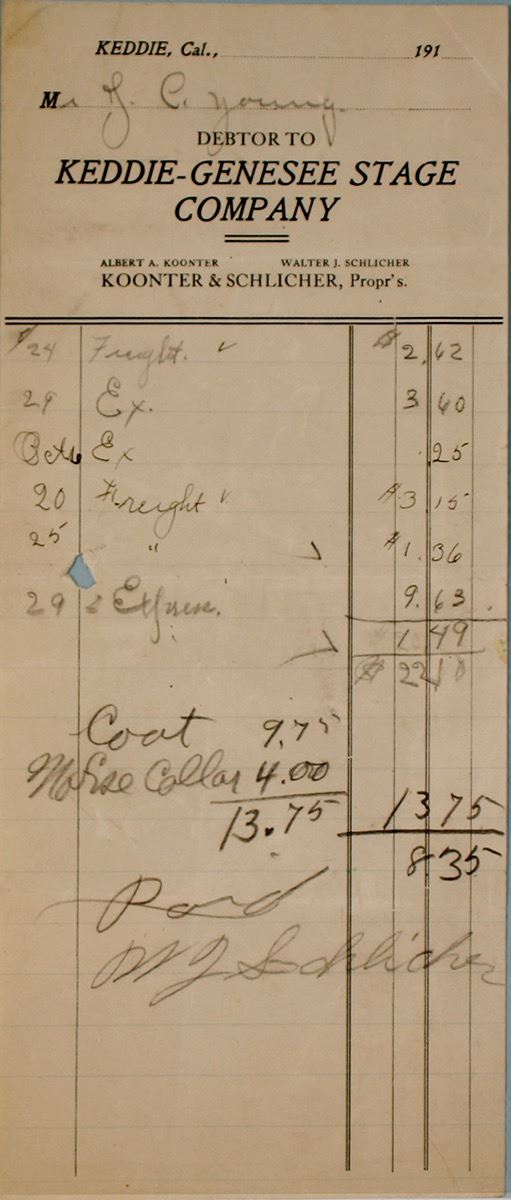 KEDDIE, Cal., 191
Mr J. C. Young.
DEBTOR TO
KEDDIE-GENESEE STAGE
COMPANY
ALBERT A. KOONTER WALTER J. SCHLICHER
KOONTER & SCHLICHER, Propr's.
24 Freight. ✓ $ 2.62
29 Ex. 3 60
Oct 6 Ex .25
20 Freight ✓ $3 15
25 " ✓ $1.36
29 & Express. 9.63
✓ 1 49
$ 22 10
Coat 9.75
Horse Collar 4.00
13.75 13 75
8 35
Paid
W J Schlicher